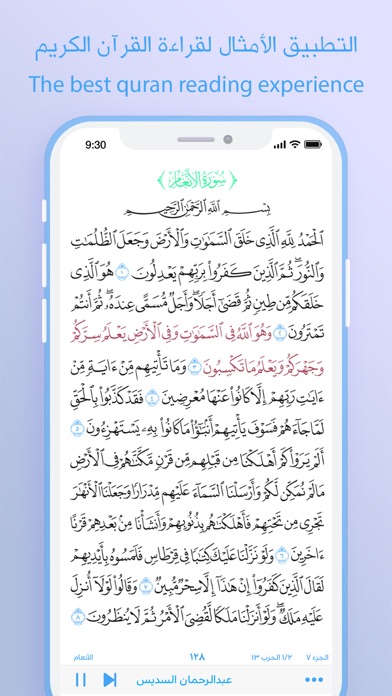 التطبيق الأمثال لقراءة القرآن الكريم
The best quran reading experience
9:30
سُورَةُ الأَنْعَامِ
بِسْمِ ٱللَّهِ ٱلرَّحْمَٰنِ ٱلرَّحِيمِ
ٱلْحَمْدُ لِلَّهِ ٱلَّذِى خَلَقَ ٱلسَّمَٰوَٰتِ وَٱلْأَرْضَ وَجَعَلَ ٱلظُّلُمَٰتِ
وَٱلنُّورَ ۖ ثُمَّ ٱلَّذِينَ كَفَرُوا۟ بِرَبِّهِمْ يَعْدِلُونَ ١ هُوَ ٱلَّذِى
خَلَقَكُم مِّن طِينٍ ثُمَّ قَضَىٰٓ أَجَلًا ۖ وَأَجَلٌ مُّسَمًّى عِندَهُۥ ۖ ثُمَّ أَنتُمْ
تَمْتَرُونَ ٢ وَهُوَ ٱللَّهُ فِى ٱلسَّمَٰوَٰتِ وَفِى ٱلْأَرْضِ ۖ يَعْلَمُ سِرَّكُمْ
وَجَهْرَكُمْ وَيَعْلَمُ مَا تَكْسِبُونَ ٣ وَمَا تَأْتِيهِم مِّنْ ءَايَةٍ مِّنْ
ءَايَٰتِ رَبِّهِمْ إِلَّا كَانُوا۟ عَنْهَا مُعْرِضِينَ ٤ فَقَدْ كَذَّبُوا۟ بِٱلْحَقِّ
لَمَّا جَآءَهُمْ ۖ فَسَوْفَ يَأْتِيهِمْ أَنۢبَٰٓؤُا۟ مَا كَانُوا۟ بِهِۦ يَسْتَهْزِءُونَ ٥
أَلَمْ يَرَوْا۟ كَمْ أَهْلَكْنَا مِن قَبْلِهِم مِّن قَرْنٍ مَّكَّنَّٰهُمْ فِى ٱلْأَرْضِ
مَا لَمْ نُمَكِّن لَّكُمْ وَأَرْسَلْنَا ٱلسَّمَآءَ عَلَيْهِم مِّدْرَارًا وَجَعَلْنَا ٱلْأَنْهَٰرَ
تَجْرِى مِن تَحْتِهِمْ فَأَهْلَكْنَٰهُم بِذُنُوبِهِمْ وَأَنشَأْنَا مِنۢ بَعْدِهِمْ قَرْنًا
ءَاخَرِينَ ٦ وَلَوْ نَزَّلْنَا عَلَيْكَ كِتَٰبًا فِى قِرْطَاسٍ فَلَمَسُوهُ بِأَيْدِيهِمْ
لَقَالَ ٱلَّذِينَ كَفَرُوٓا۟ إِنْ هَٰذَآ إِلَّا سِحْرٌ مُّبِينٌ ٧ وَقَالُوا۟ لَوْلَآ أُنزِلَ
عَلَيْهِ مَلَكٌ ۖ وَلَوْ أَنزَلْنَا مَلَكًا لَّقُضِىَ ٱلْأَمْرُ ثُمَّ لَا يُنظَرُونَ ٨
الجزء ٧ ١/٢ الحزب ١٣ ١٢٨ الأنعام
عبدالرحمان السديس